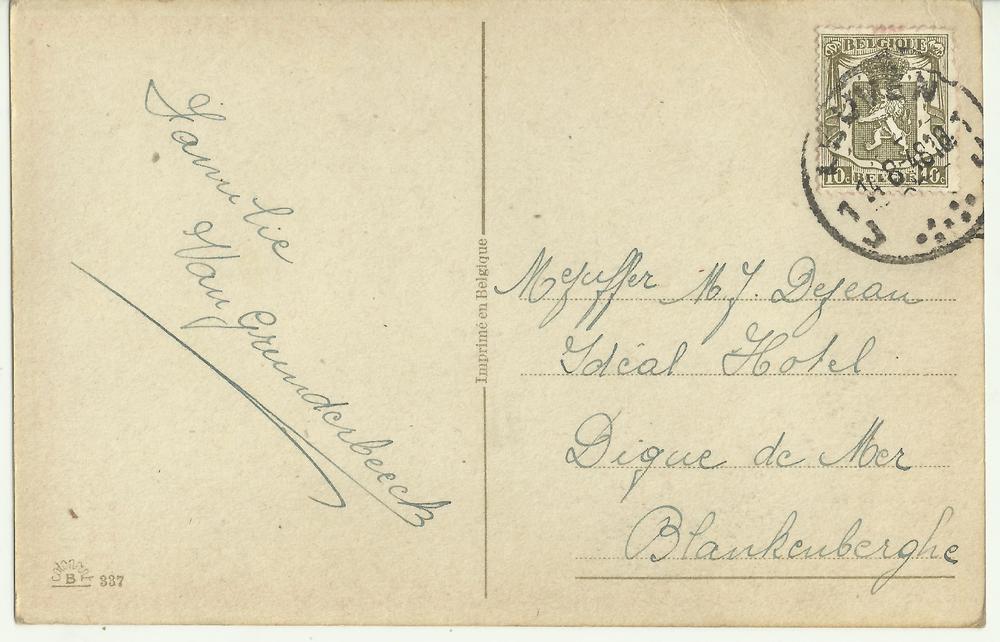 Familie
Van Grunderbeeck
Imprimé en Belgique
B 337
BELGIQUE
10c BELGIË 10c
LEUVEN
Mejuffer M.J. Dejean
Idéal Hotel
Digue de Mer
Blankenberghe